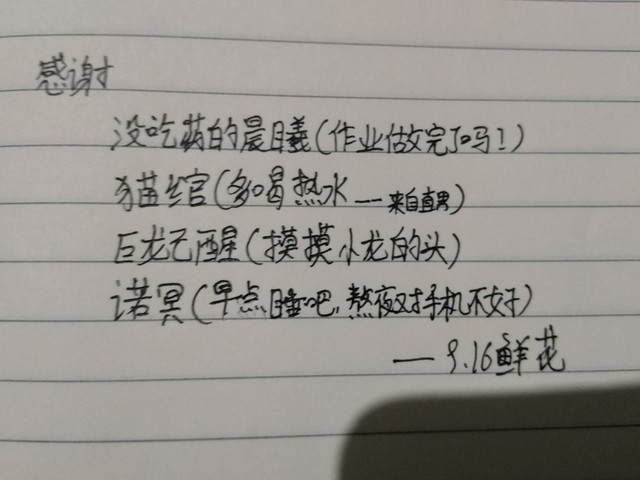 感谢
没吃药的晨曦(作业做完了吗!)
猫绾(多喝热水——来自直男)
巨龙已醒(摸摸小龙的头)
诺冥(早点睡吧,熬夜对手机不好)
——9.16鲜花